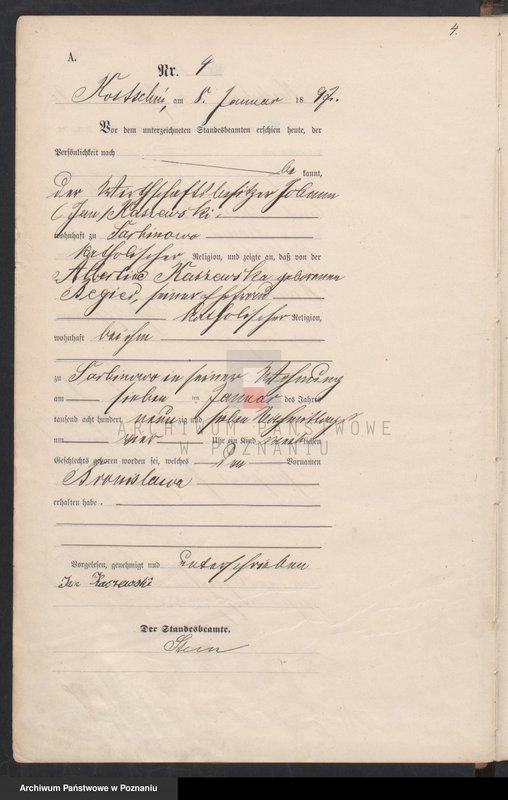 4.
A.
Nr. 4
Kostschin, am 8. Januar 1897.
Vor dem unterzeichneten Standesbeamten erschien heute, der
Persönlichkeit nach
be kannt,
der Wirthschaftsbesitzer Johann
(Jan) Kaszewski
wohnhaft zu Tarkinowo
katholischer Religion, und zeigte an, daß von der
Albertine Kaszewska geborenen
seiner Ehefrau
katholischer Religion,
wohnhaft bei ihm
zu Tarkinowo in seiner Wohnung
am sieben ten Januar des Jahres
tausend acht hundert neun zig und sieben Nachmittags
um vier Uhr ein Kind weib lichen
Geschlechts geboren worden sei, welches den Vornamen
Bronislawa
erhalten habe.
Vorgelesen, genehmigt und unterschrieben
Jan Kaczewski
Der Standesbeamte.
Stein
ARCHIWUM PAŃSTWOWE
W POZNANIU
Archiwum Państwowe w Poznaniu